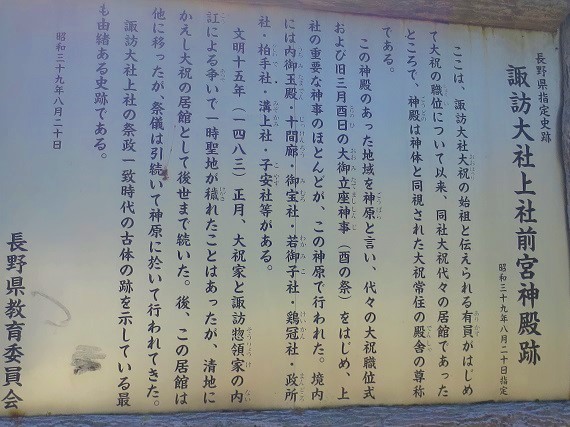 長野県指定史跡
諏訪大社上社前宮神殿跡
昭和三十九年八月二十日指定
ここは、諏訪大社大祝の始祖と伝えられる有員がはじめ
て大祝の職位について以来、同社大祝代々の居館であった
ところで、神殿は神体と同視された大祝常住の殿舎の尊称
である。
この神殿のあった地域を神原と言い、代々の大祝職位式
および旧三月酉日の大御立座神事（酉の祭）をはじめ、上
社の重要な神事のほとんどが、この神原で行われた。境内
には内御玉殿・十間廊・御室社・若御子社・鶏冠社・政所
社・柏手社・溝上社・子安社等がある。
文明十五年（一四八三）正月、大祝家と諏訪惣領家の内
訌による争いで一時聖地が穢れたことはあったが、清地に
かえし大祝の居館として後世まで続いた。後、この居館は
他に移ったが、祭儀は引続いて神原に於いて行われてきた。
諏訪大社上社の祭政一致時代の古体の跡を示している最
も由緒ある史跡である。
昭和三十九年八月二十日
長野県教育委員会